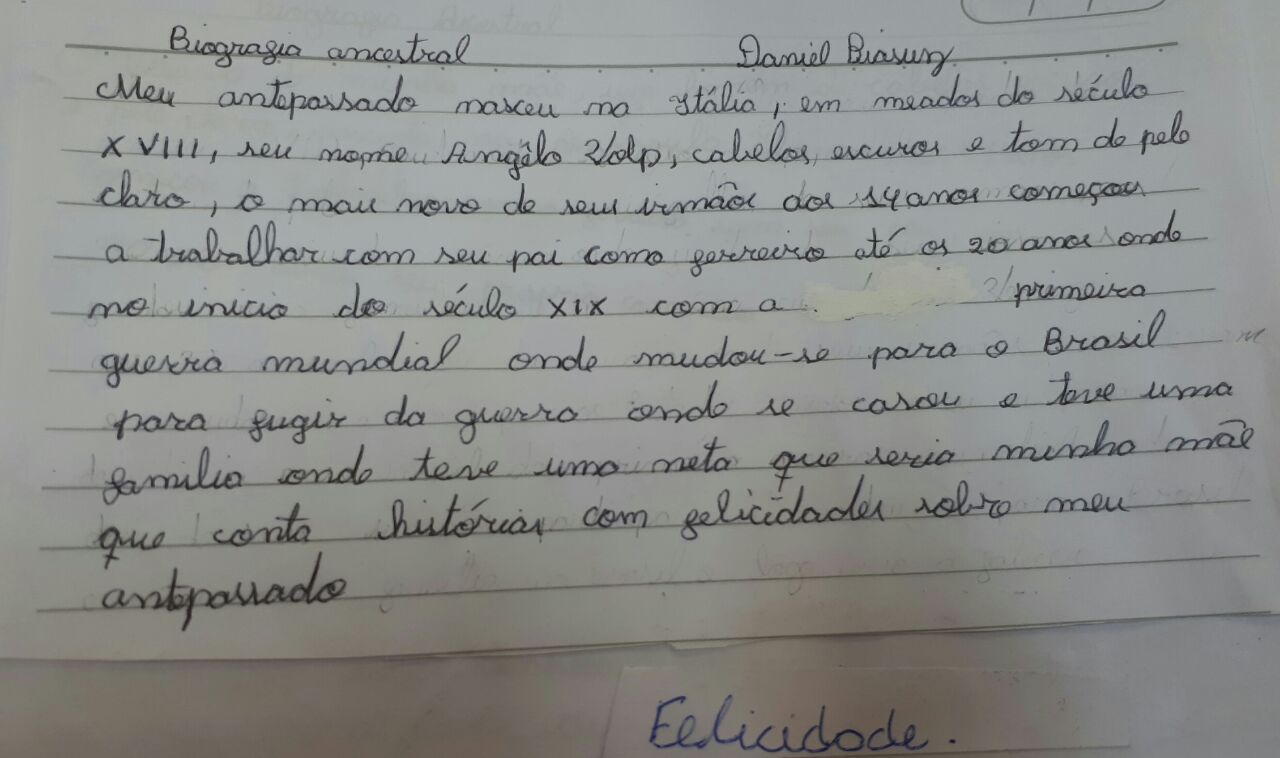 Biografia ancestral Daniel
Meu antepassado nasceu na Itália, em meados do século
XVIII, seu nome Angélo Volp, cabelos escuros e tom de pele
claro, o mais novo de seus irmãos aos 14 anos começou
a trabalhar com seu pai como ferreiro até os 20 anos onde
no inicio do século XIX com a primeira
guerra mundial onde mudou-se para o Brasil
para fugir da guerra onde se casou e teve uma
familia onde teve uma neta que seria minha mãe
que conta histórias com felicidades sobre meu
antepassado
Felicidade.